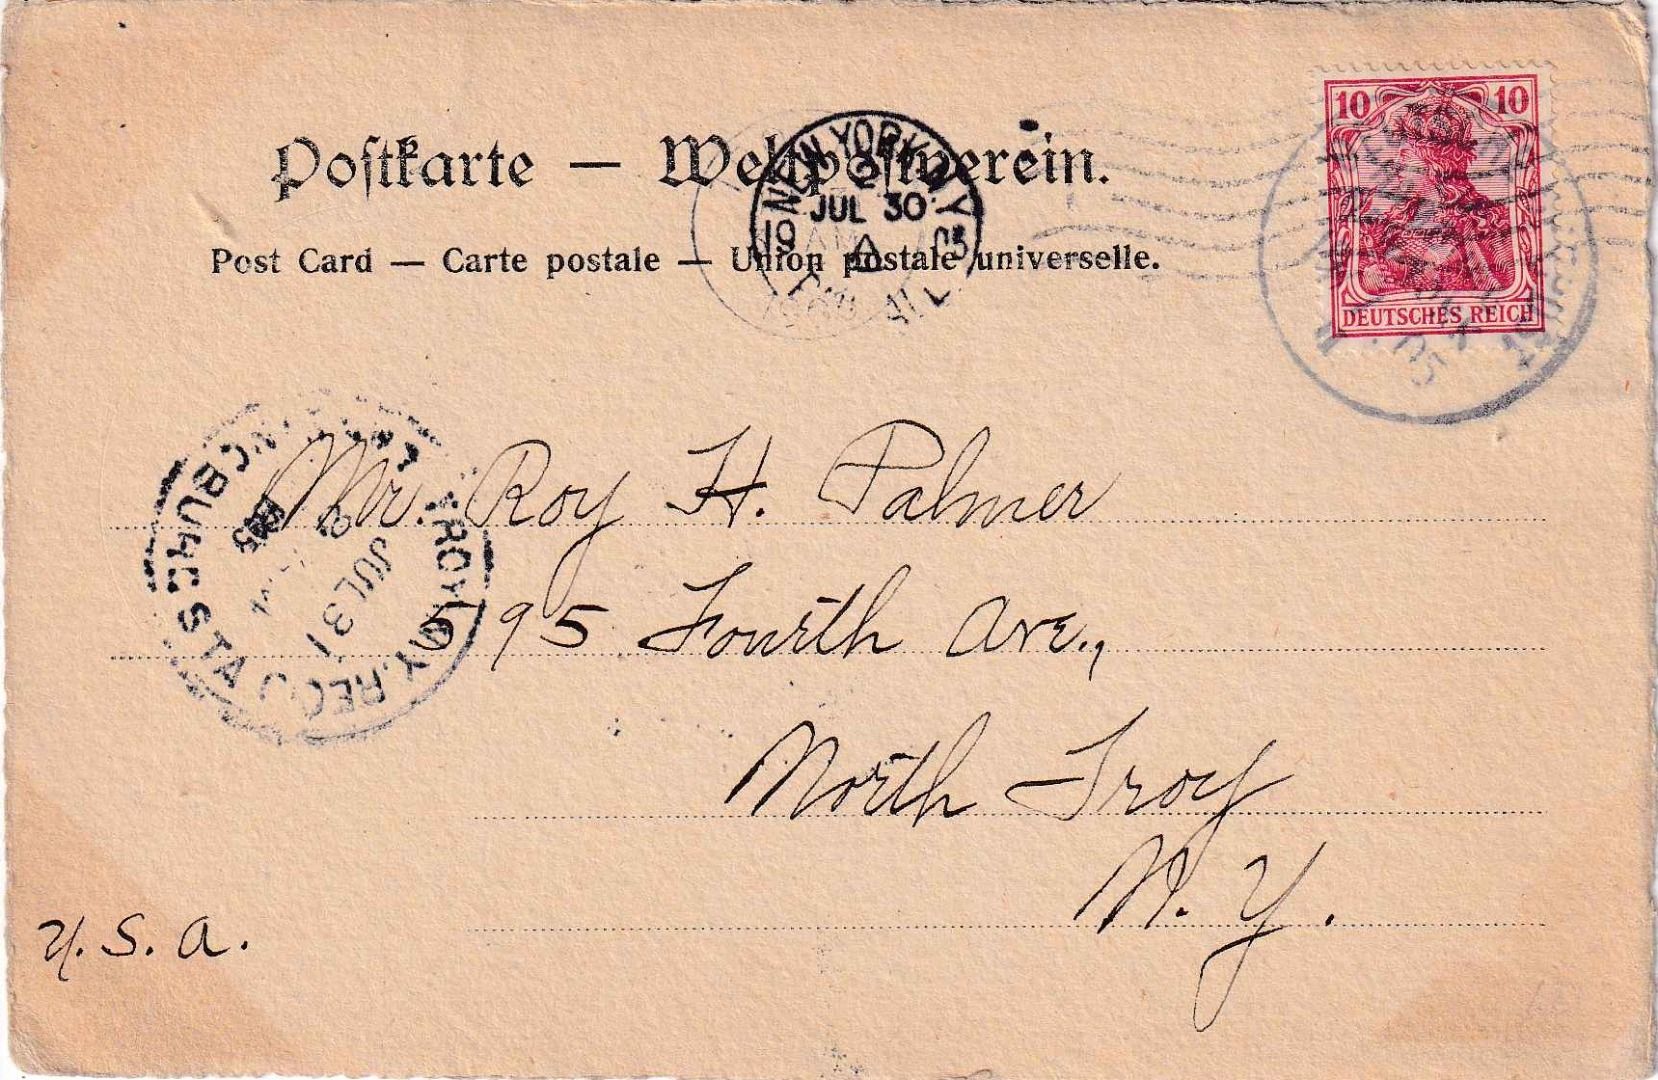 Postkarte — Weltpostverein.
Post Card — Carte postale — Union postale universelle.
10 10
DEUTSCHES REICH
NEW YORK, N.Y.
2
JUL 30
19 05
A
Mr. Roy H. Palmer
595 Fourth Ave.,
North Troy
N. Y.
U. S. A.
TROY, N.Y. REC'D
LANSINGBURGH STA.
JUL 31